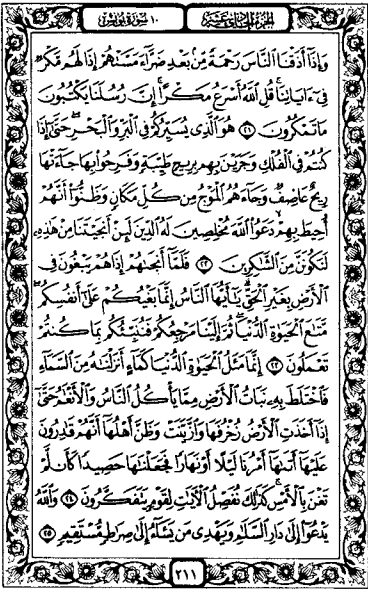 الجزء الحادي عشر ١٠ سورة يونس
وَإِذَآ أَذَقْنَا ٱلنَّاسَ رَحْمَةً مِّنۢ بَعْدِ ضَرَّآءَ مَسَّتْهُمْ إِذَا لَهُم مَّكْرٌ
فِىٓ ءَايَاتِنَا ۚ قُلِ ٱللَّهُ أَسْرَعُ مَكْرًا ۚ إِنَّ رُسُلَنَا يَكْتُبُونَ
مَا تَمْكُرُونَ ٢١ هُوَ ٱلَّذِى يُسَيِّرُكُمْ فِى ٱلْبَرِّ وَٱلْبَحْرِ ۖ حَتَّىٰٓ إِذَا
كُنتُمْ فِى ٱلْفُلْكِ وَجَرَيْنَ بِهِم بِرِيحٍ طَيِّبَةٍ وَفَرِحُوا۟ بِهَا جَآءَتْهَا
رِيحٌ عَاصِفٌ وَجَآءَهُمُ ٱلْمَوْجُ مِن كُلِّ مَكَانٍ وَظَنُّوٓا۟ أَنَّهُمْ
أُحِيطَ بِهِمْ ۙ دَعَوُا۟ ٱللَّهَ مُخْلِصِينَ لَهُ ٱلدِّينَ لَئِنْ أَنجَيْتَنَا مِنْ هَٰذِهِۦ
لَنَكُونَنَّ مِنَ ٱلشَّٰكِرِينَ ٢٢ فَلَمَّآ أَنجَىٰهُمْ إِذَا هُمْ يَبْغُونَ فِى
ٱلْأَرْضِ بِغَيْرِ ٱلْحَقِّ ۗ يَٰٓأَيُّهَا ٱلنَّاسُ إِنَّمَا بَغْيُكُمْ عَلَىٰٓ أَنفُسِكُم ۖ
مَّتَٰعَ ٱلْحَيَوٰةِ ٱلدُّنْيَا ۖ ثُمَّ إِلَيْنَا مَرْجِعُكُمْ فَنُنَبِّئُكُم بِمَا كُنتُمْ
تَعْمَلُونَ ٢٣ إِنَّمَا مَثَلُ ٱلْحَيَوٰةِ ٱلدُّنْيَا كَمَآءٍ أَنزَلْنَٰهُ مِنَ ٱلسَّمَآءِ
فَٱخْتَلَطَ بِهِۦ نَبَاتُ ٱلْأَرْضِ مِمَّا يَأْكُلُ ٱلنَّاسُ وَٱلْأَنْعَٰمُ حَتَّىٰٓ
إِذَآ أَخَذَتِ ٱلْأَرْضُ زُخْرُفَهَا وَٱزَّيَّنَتْ وَظَنَّ أَهْلُهَآ أَنَّهُمْ قَٰدِرُونَ
عَلَيْهَآ أَتَىٰهَآ أَمْرُنَا لَيْلًا أَوْ نَهَارًا فَجَعَلْنَٰهَا حَصِيدًا كَأَن لَّمْ
تَغْنَ بِٱلْأَمْسِ ۚ كَذَٰلِكَ نُفَصِّلُ ٱلْءَايَٰتِ لِقَوْمٍ يَتَفَكَّرُونَ ٢٤ وَٱللَّهُ
يَدْعُوٓا۟ إِلَىٰ دَارِ ٱلسَّلَٰمِ وَيَهْدِى مَن يَشَآءُ إِلَىٰ صِرَٰطٍ مُّسْتَقِيمٍ ٢٥
٢١١